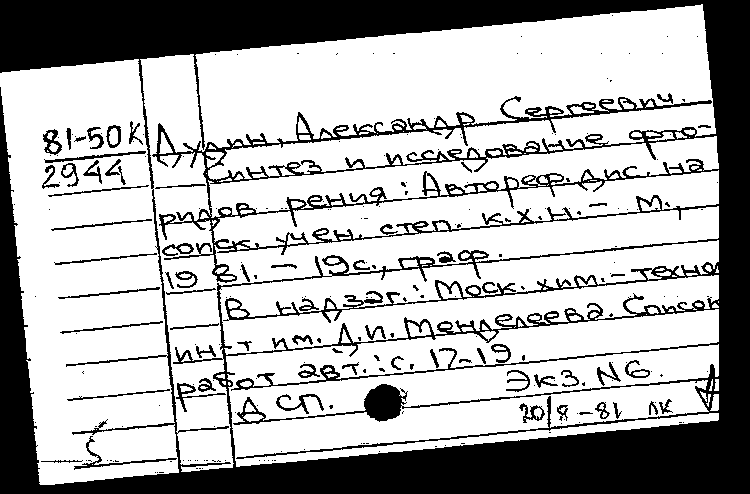 81-50К
2944
Дудин, Александр Сергеевич.
Синтез и исследование фто-
ридов рения: Автореф. дис. на
соиск. учен. степ. к.х.н. - М.,
1981. - 19 с., граф.
В надзаг.: Моск. хим.-техно
ин-т им. Д.И. Менделеева. Список
работ авт.: с. 17-19.
Экз. N6.
ДСП.
20/8-81 ЛК